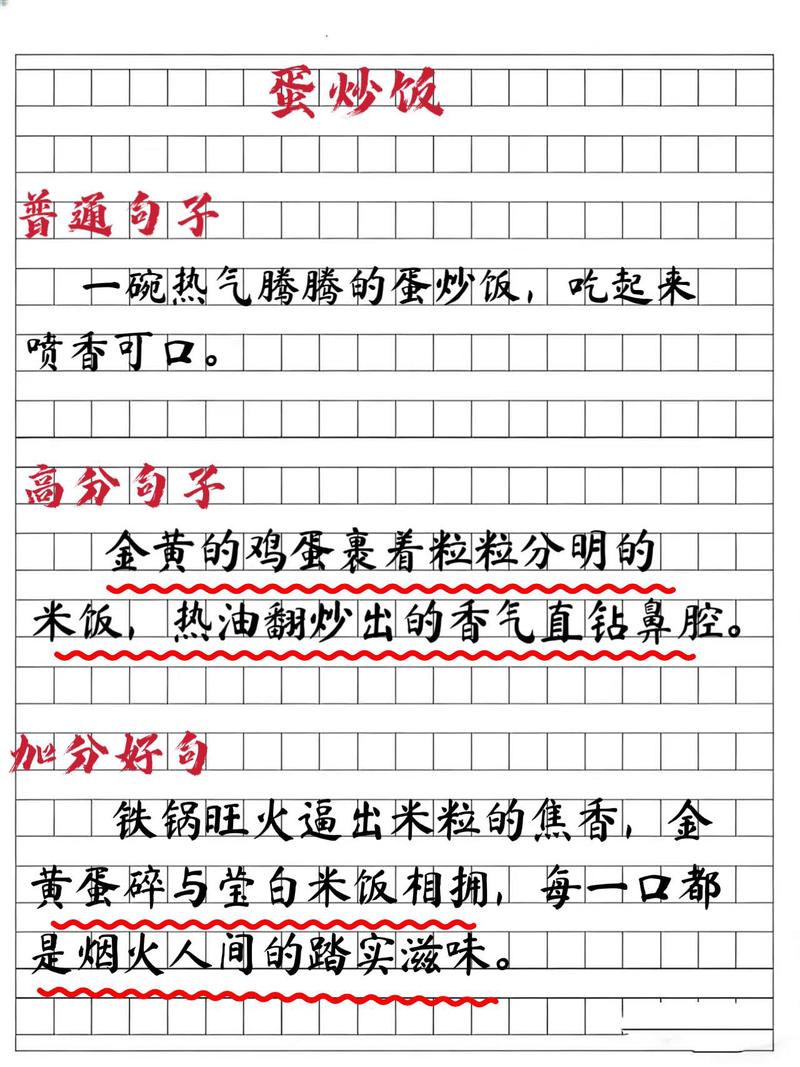 蛋炒饭
普通句子
一碗热气腾腾的蛋炒饭，吃起来
喷香可口。
高分句子
金黄的鸡蛋裹着粒粒分明的
米饭，热油翻炒出的香气直钻鼻腔。
加分好句
铁锅旺火逼出米粒的焦香，金
黄蛋碎与莹白米饭相拥，每一口都
是烟火人间的踏实滋味。